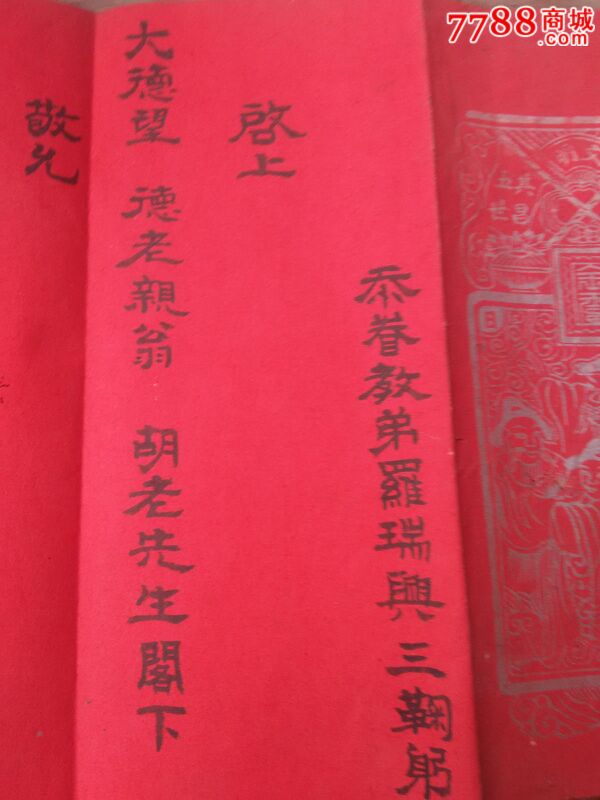 7788商城
忝眷教弟羅瑞興三鞠躬
啓上
大德望 德老親翁 胡老先生閣下
敬允
其昌
五世